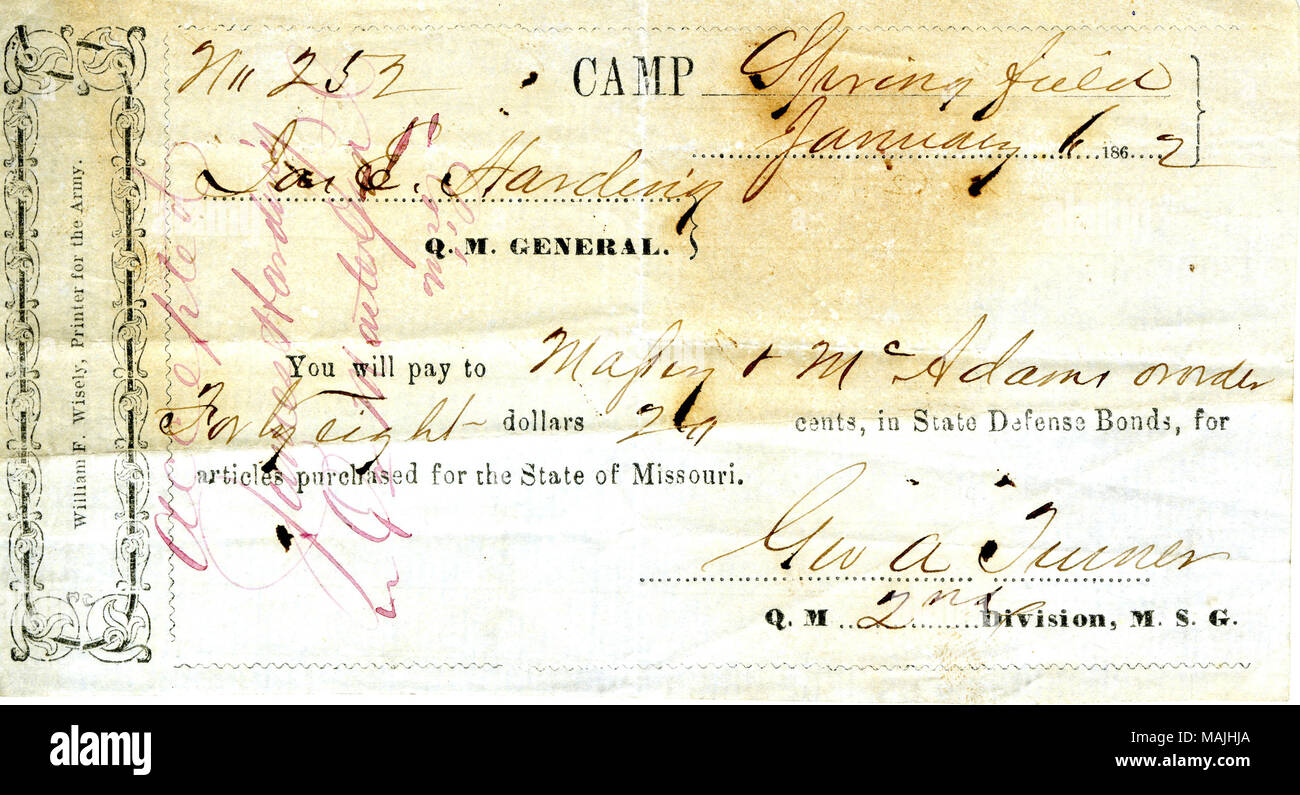 No 252
CAMP Springfield
January 6 1862
Jas. Harding
Q. M. GENERAL.
You will pay to & McAdams or order
Forty eight dollars 20 cents, in State Defense Bonds, for
articles purchased for the State of Missouri.
Geo A Turner
Q. M 2nd Division, M. S. G.
William F. Wisely, Printer for the Army.
Accepted
James Harding
Qr Master Genl
alamy
Image ID: MAJHJA
www.alamy.com